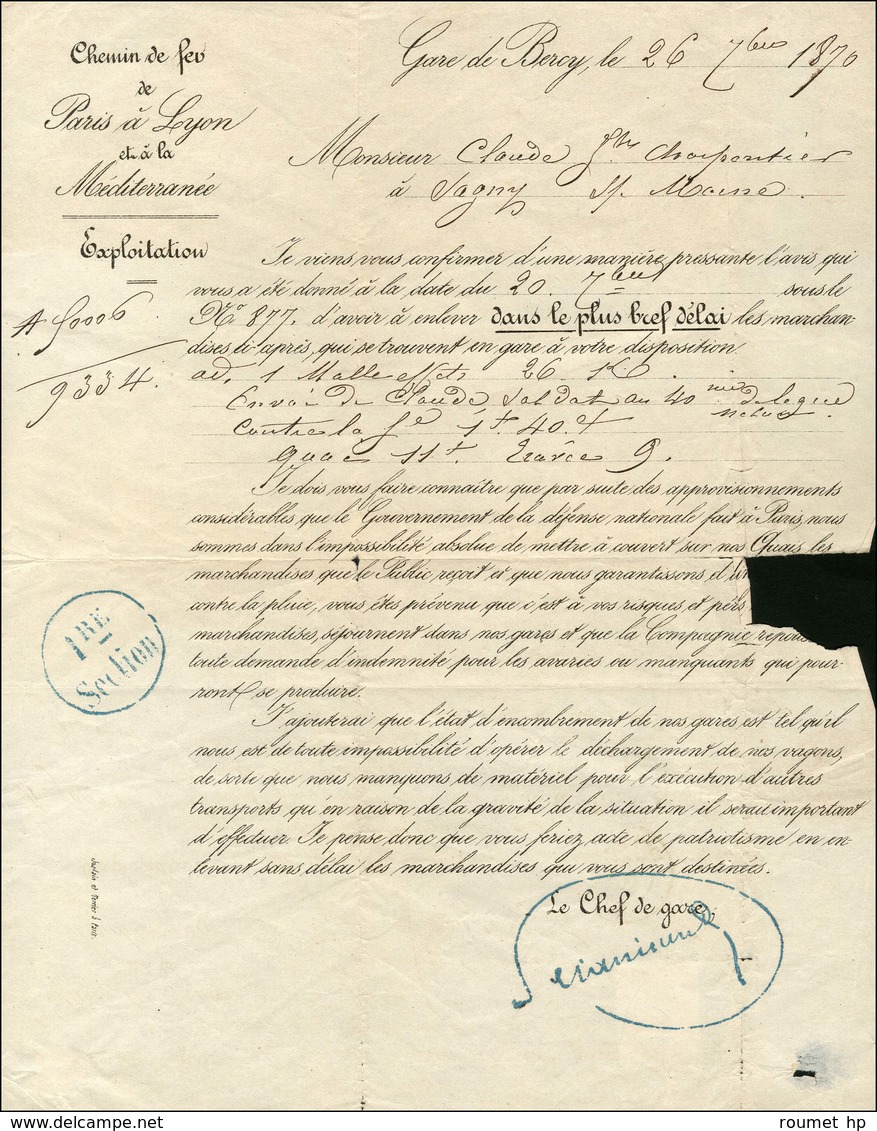 Chemin de fer
de
Paris à Lyon
et à la
Méditerranée
Exploitation
Gare de Bercy, le 26 7bre 1870
Monsieur Claude Charpentier
à Sagny S/ Marne.
A 50006
9334.
Je viens vous confirmer d'une manière pressante l'avis qui
vous a été donné à la date du 20. 7bre sous le
No 877. d'avoir à enlever dans le plus bref délai les marchan-
dises ci-après, qui se trouvent en gare à votre disposition.
ad. 1 Malle effets 26 K.
Envoi de Claude Soldat au 40 me de ligne
contre la 1t. 40.
quai 11t. Travée 9.
Je dois vous faire connaître que par suite des approvisionnements
considérables que le Gouvernement de la défense nationale fait à Paris, nous
sommes dans l'impossibilité absolue de mettre à couvert sur nos Quais les
marchandises que le Public reçoit et que nous garantissons d'
contre la pluie, vous êtes prévenu que c'est à vos risques et péri
marchandises, séjournent dans nos gares et que la Compagnie repou
toute demande d'indemnité pour les avaries ou manquants qui pour-
ront se produire.
J'ajouterai que l'état d'encombrement de nos gares est tel qu'il
nous est de toute impossibilité d'opérer le déchargement de nos vagons,
de sorte que nous manquons de matériel pour l'exécution d'autres
transports qu'en raison de la gravité de la situation il serait important
d'effectuer. Je pense donc que vous feriez acte de patriotisme en en-
levant sans délai les marchandises qui vous sont destinées.
1RE
Section
Le Chef de gare,
roumet hp